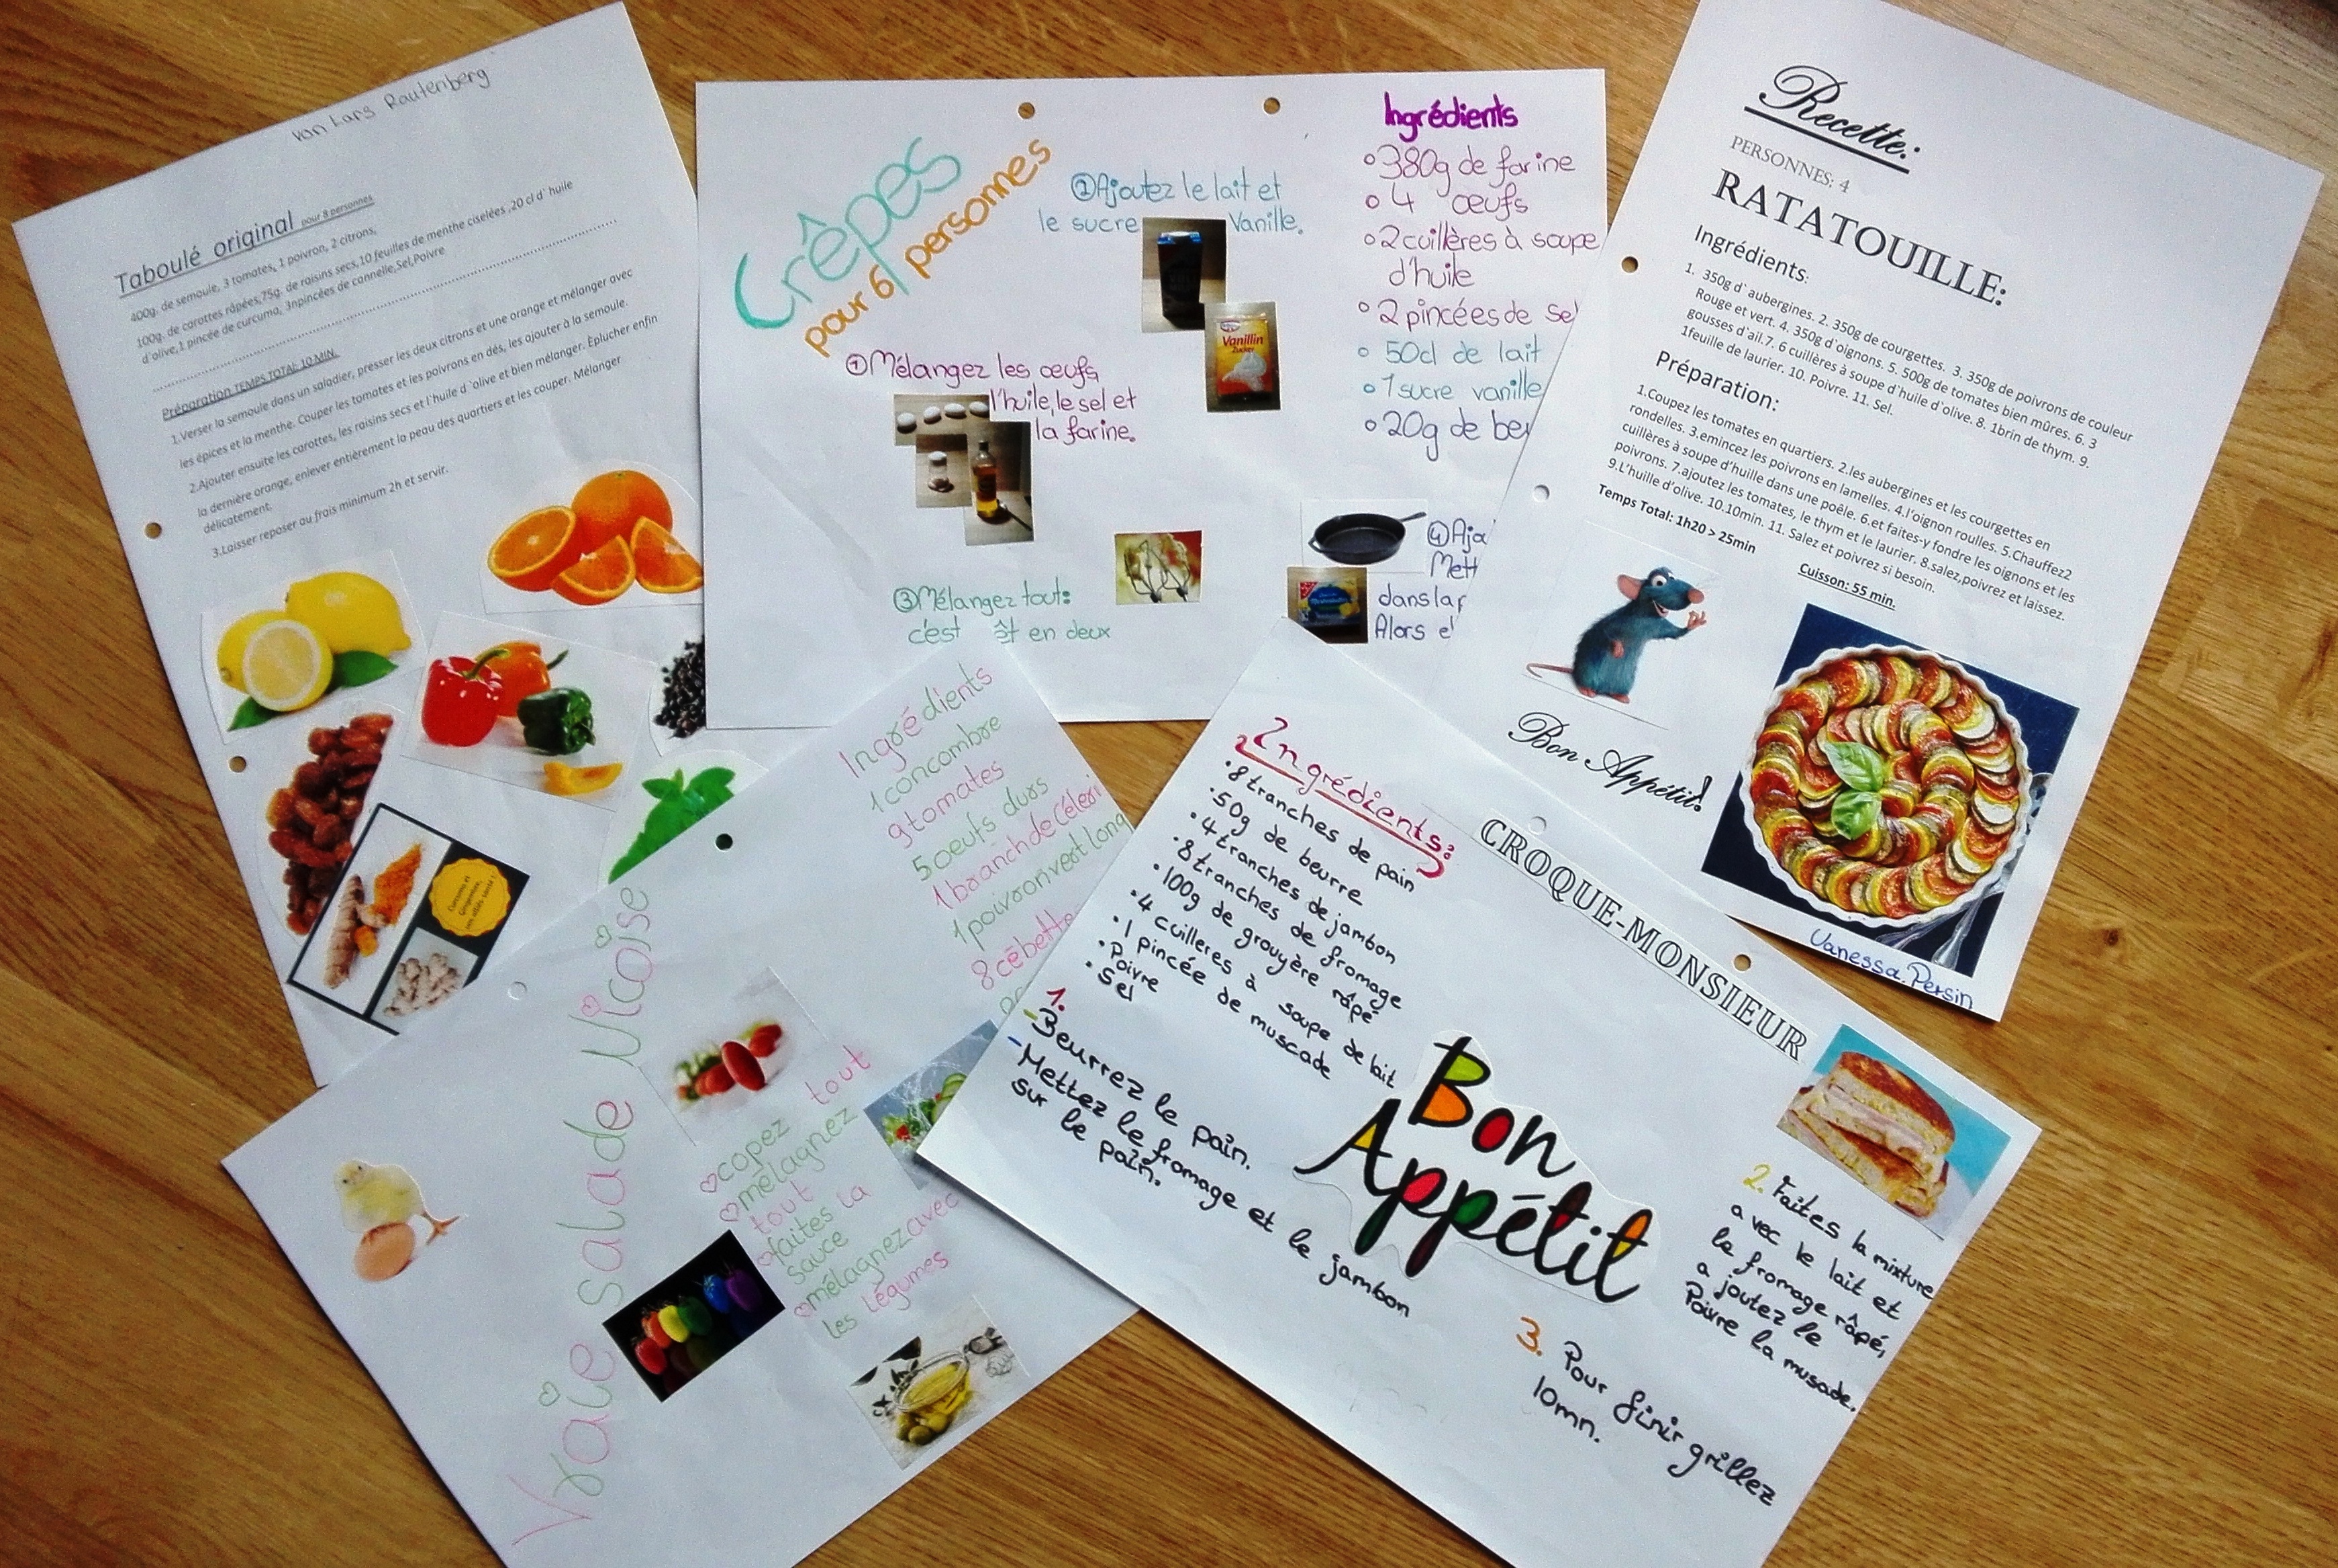 von Lars Rautenberg
Taboulé original pour 8 personnes
400g. de semoule, 3 tomates, 1 poivron, 2 citrons,
100g. de carottes râpées,75g. de raisins secs,10 feuilles de menthe ciselées ,20 cl d`huile
d`olive,1 pincée de curcuma, 3npincées de cannelle,Sel,Poivre
Préparation TEMPS TOTAL 10 MIN.
1.Verser la semoule dans un saladier, presser les deux citrons et une orange et mélanger avec
les épices et la menthe. Couper les tomates et les poivrons en dés, les ajouter à la semoule.
2.Ajouter ensuite les carottes, les raisins secs et l`huile d`olive et bien mélanger. Èplucher enfin
la dernière orange, enlever entièrement la peau des quartiers et les couper. Mélanger
délicatement.
3.Laisser reposer au frais minimum 2h et servir.
Crêpes
pour 6 personnes
① Mélangez les œufs,
l'huile, le sel et
la farine.
② Ajoutez le lait et
le sucre Vanille.
Vanillin
Zucker
③ Mélangez tout:
c'est êt en deux
④ Ajo
Mett
dans la
Alors e
Ingrédients
° 380g de farine
° 4 œufs
° 2 cuillères à soupe
d'huile
° 2 pincées de sel
° 50cl de lait
° 1 sucre vanille
° 20g de beu
Recette:
PERSONNES: 4
RATATOUILLE:
Ingrédients:
1. 350g d`aubergines. 2. 350g de courgettes. 3. 350g de poivrons de couleur
Rouge et vert. 4. 350g d`oignons. 5. 500g de tomates bien mûres. 6. 3
gousses d`ail.7. 6 cuillères à soupe d`huile d`olive. 8. 1brin de thym. 9.
1feuille de laurier. 10. Poivre. 11. Sel.
Préparation:
1.Coupez les tomates en quartiers. 2.les aubergines et les courgettes en
rondelles. 3.emincez les poivrons en lamelles. 4.l'oignon roulles. 5.Chauffez2
cuillères à soupe d'huille dans une poêle. 6.et faites-y fondre les oignons et les
poivrons. 7.ajoutez les tomates, le thym et le laurier. 8.salez,poivrez et laissez.
9.L'huille d'olive. 10.10min. 11. Salez et poivrez si besoin.
Temps Total: 1h20 > 25min
Cuisson: 55 min.
Bon Appétit!
Vanessa Persin
Vraie salade Nicoise
Ingrédients
1 concombre
9 tomates
5 oeufs durs
1 branch de Céleri
1 poivron vert long
8 cébette
copez tout
mélagnez
tout
faites la
sauce
mélagnez avec
les légumes
CROQUE-MONSIEUR
Ingrédients:
• 8 tranches de pain
• 50g de beurre
• 4 tranches de jambon
• 8 tranches de fromage
• 100g de grouyère râpé
• 4 cuilleres à soupe de lait
• 1 pincée de muscade
• Poivre
• Sel
1.
- Beurrez le pain.
- Mettez le fromage et le jambon
sur le pain.
Bon
Appétit
2. Faites la mixture
avec le lait et
le fromage râpé,
ajoutez le
Poivre la musade.
3. Pour finir grillez
10mn.